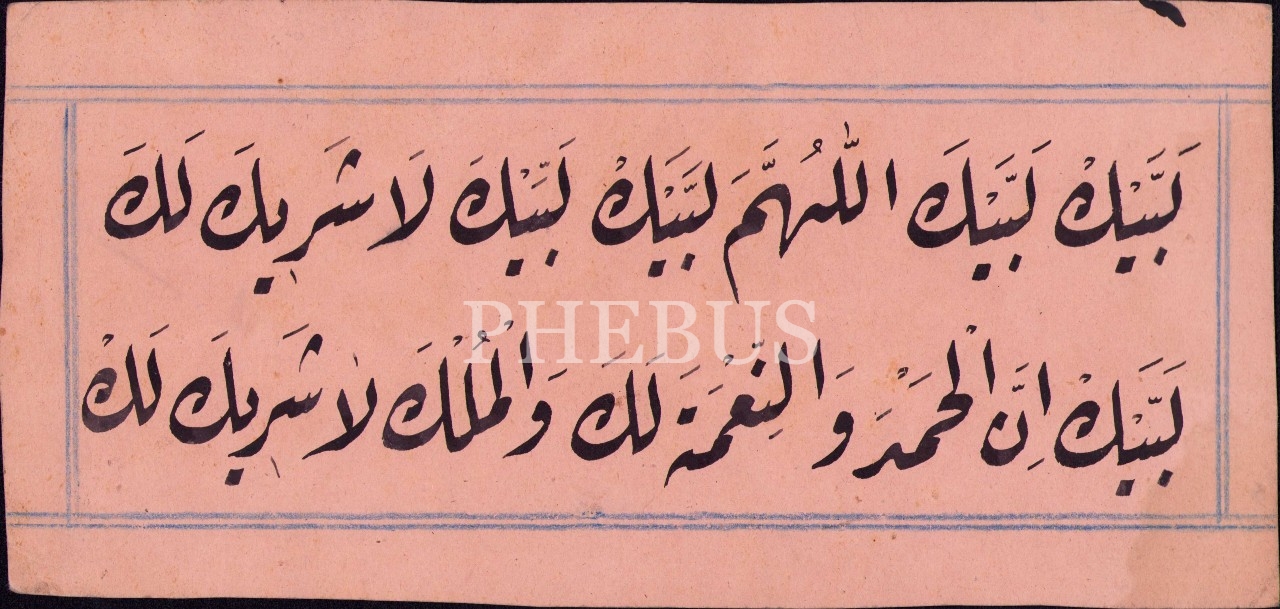 لَبَّيْكْ لَبَّيْكَ اللّٰهُمَّ لَبَّيْكْ لَبَّيْكَ لَا شَرِيكَ لَكَ
PHEBUS
لَبَّيْكْ اِنَّ الْحَمْدَ وَالنِّعْمَةَ لَكَ وَالْمُلْكَ لَا شَرِيكَ لَكْ